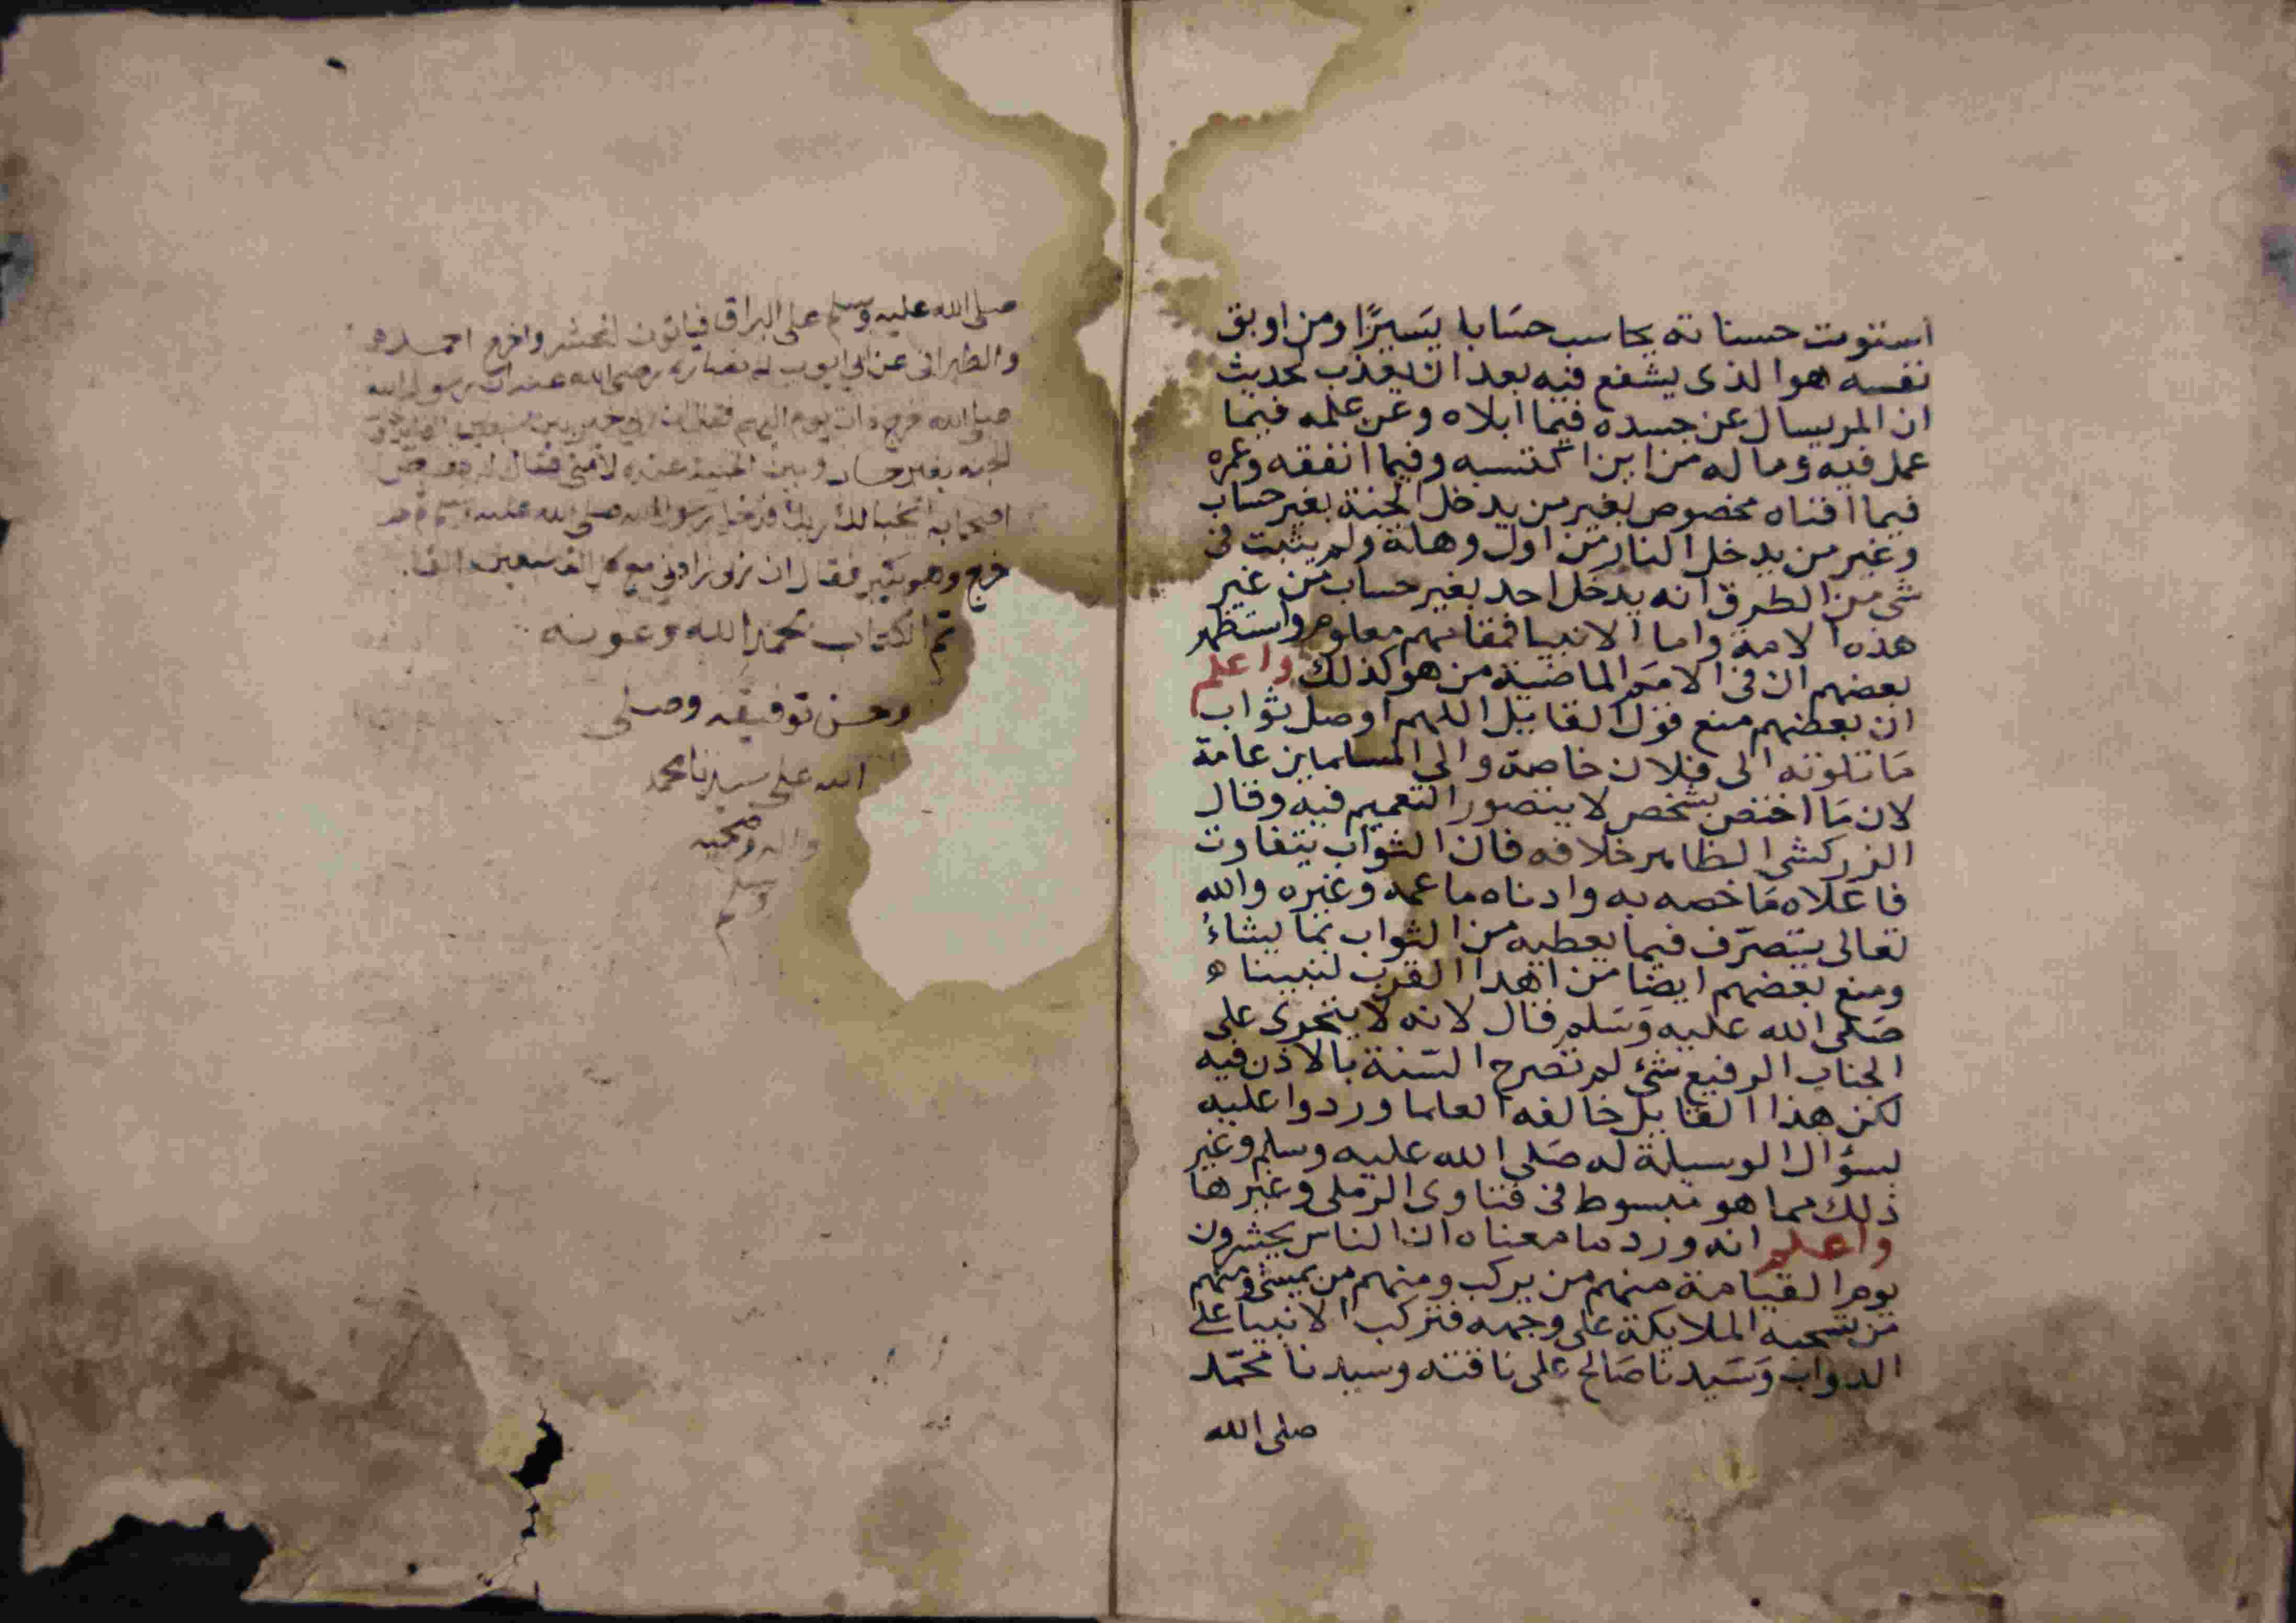 استوت حسناته يحاسب حسابا يسيرًا ومن اوبق
نفسه هو الذى يشفع فيه بعد ان يعذب لحديث
ان المر يسال عن جسده فيما ابلاه وعن علمه فيما
عمل فيه وماله من اين اكتسبه وفيما انفقه وعمره
فيما افناه مخصوص بغير من يدخل الجنة بغير حساب
وغير من يدخل النار من اول وهلة ولم يثبت فى
شى من الطرق انه يدخل احد بغير حساب من غير
هذه الامة واما الانبيا فمقامهم معلوم واستظهر
بعضهم ان فى الامم الماضية من هو كذلك واعلم
ان بعضهم منع قول القايل اللهم اوصل ثواب
ما تلوته الى فلان خاصة والى المسلمين عامة
لان ما اختص بشخص لا يتصور التعميم فيه وقال
الزركشى الظاهر خلافه فان الثواب يتفاوت
فاعلاه ما خصه به وادناه ما عمه وغيره والله
تعالى يتصرف فيما يعطيه من الثواب بما يشاءُ
ومنع بعضهم ايضا من اهدا القرب لنبينا
صَلى الله عليه وَسَلم قال لانه لا يتجرى على
الجناب الرفيع شئ لم تصرح السّنة بالاذن فيه
لكن هذا القايل خالفه العلما وردوا عليه
بسؤال الوسيلة له صَلى الله عليه وسلم وغير
ذلك مما هو مبسوط فى فتاوى الرملى وغيرها
واعلم انه ورد ما معناه ان الناس يحشرون
يوم القيامة منهم من يركب ومنهم من يمشى ومنهم
من تسحبه الملايكة على وجهه فتركب الانبيا على
الدواب وَسَيدنا صَالح على ناقته وسيدنا محمّد
صلى الله
صلى الله عليه وسلم على البراق فياتون المحشر واخرج احمد
والطبرانى عن ابى ايوب الانصارى رضى الله عنه ان رسول الله
صلى الله خرج ذات يوم اليهم فقال ان ربى خيرنى بين سبعين الفا
الجنه بغير حساب وبين عنده لامتى فقال له بعض
اصحابه ايخبا لك ربك فدخل رسول الله صلى الله عليه وسلم ثم
خرج وهو يكبر فقال ان ربى زادنى مع كل الف سبعين الفا
تم الكتاب بحمد الله وعونه
وحسن توفيقه وصلى
الله على سيدنا محمد
واله وصحبه
وسلم